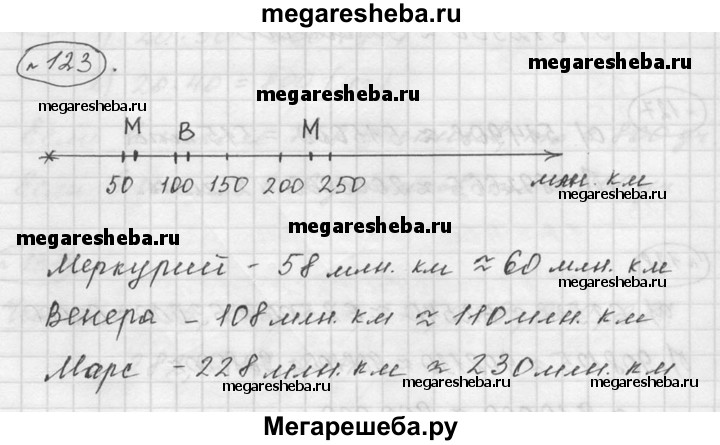 megaresheba.ru
№ 123.
megaresheba.ru megaresheba.ru megaresheba.ru
М В М
50 100 150 200 250 млн. км
megaresheba.ru megaresheba.ru megaresheba.ru
megaresheba.ru megaresheba.ru
Меркурий - 58 млн. км ≈ 60 млн. км
megaresheba.ru
Венера - 108 млн. км ≈ 110 млн. км
megaresheba.ru
Марс - 228 млн. км ≈ 230 млн. км
megaresheba.ru megaresheba.ru megaresheba.ru
Мегарешеба.ру